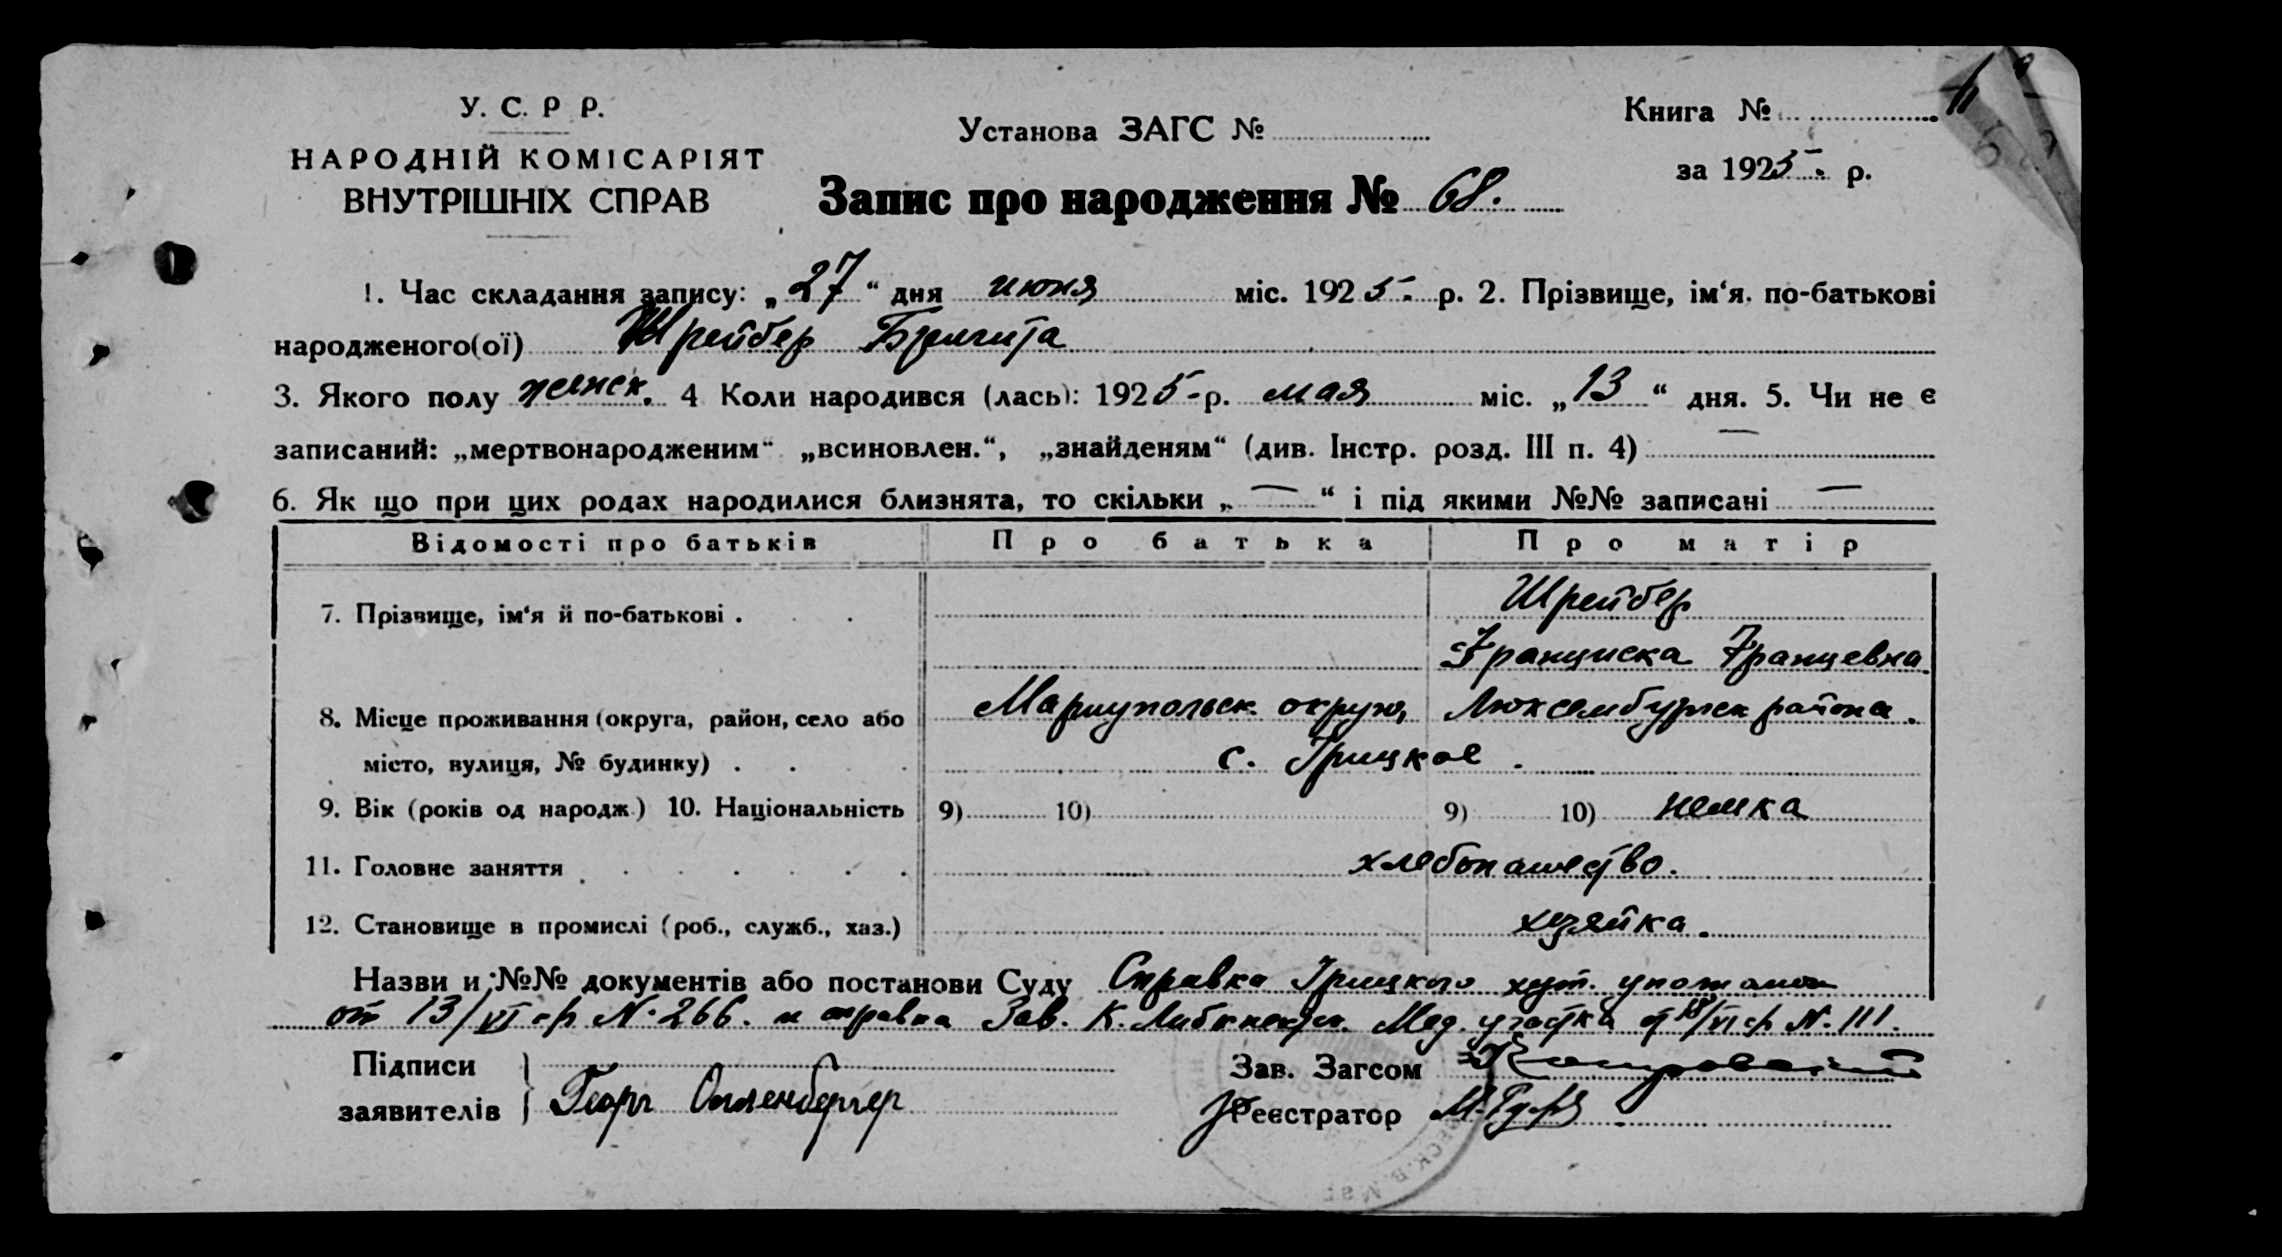 У. С. Р Р.
НАРОДНІЙ КОМІСАРІЯТ
ВНУТРІШНІХ СПРАВ
Установа ЗАГС №
Книга №
за 1925 р.
Запис про народження № 68.
1. Час складання запису: „27“ дня июня міс. 1925. р. 2. Прізвище, ім‘я. по-батькові
народженого(ої) Шрейбер Бригита
3. Якого полу женск. 4 Коли народився (лась): 1925 - р. мая міс. „13“ дня. 5. Чи не є
записаний: „мертвонародженим“ „всиновлен.“, „знайденям“ (див. Інстр. розд. III п. 4) —
6. Як що при цих родах народилися близнята, то скільки „—“ і під якими №№ записані —
Відомості про батьків Про батька Про матір
7. Прізвище, ім‘я й по-батькові . Шрейбер
Франциска Францевна
8. Місце проживання (округа, район, село або Мариупольск округ, Люксембургск района.
місто, вулиця, № будинку) . с. Грицкое .
9. Вік (років од народж.) 10. Національність 9) 10) 9) 10) немка
11. Головне заняття хлебопашество.
12. Становище в промислі (роб., служб., хаз.) хозяйка.
Назви и №№ документів або постанови Суду Справка Грицкого хут.
от 13/VI с/г N. 266. и справка Зав. К. Мед. участка от 18/VI с/г N. 111.
Підписи Зав. Загсом
заявителів Георг Реєстратор